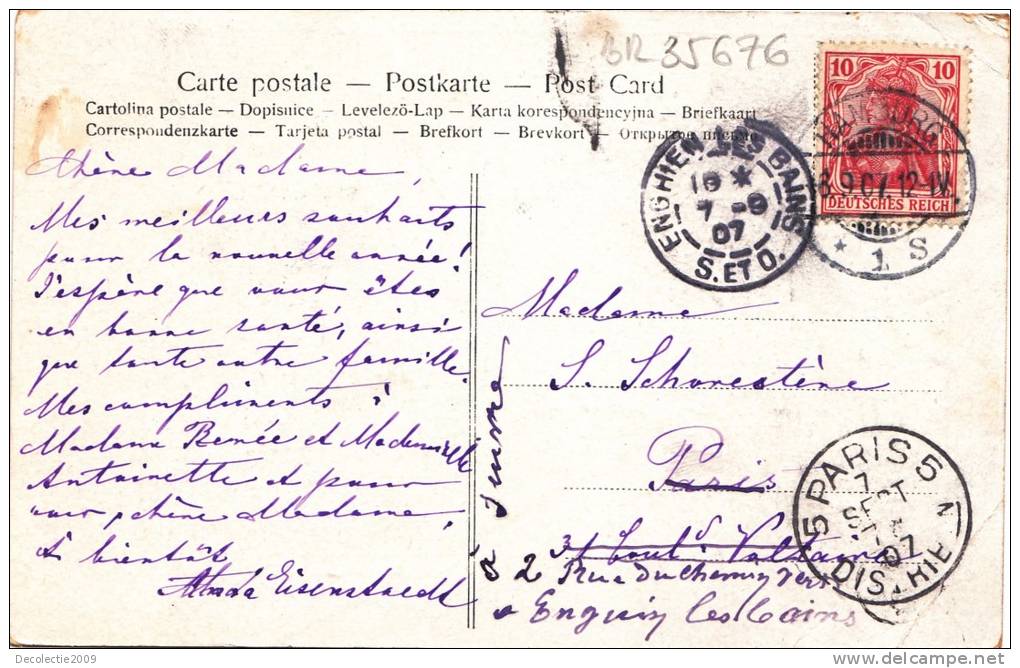 BR 35676
Carte postale — Postkarte — Post Card
Cartolina postale — Dopisnice — Levelező-Lap — Karta korespondencyjna — Briefkaart
Correspondenzkarte — Tarjeta postal — Brefkort — Brevkort — Открытое письмо
10 10
DEUTSCHES REICH
HAMBURG
6.9.07. 12-1V.
* 1. S
ENGHIEN LES BAINS
18 *
7 -9
07
S. ET O.
Chère Madame,
Mes meilleurs souhaits
pour la nouvelle année!
J'espère que vous êtes
en bonne santé, ainsi
que toute votre famille.
Mes compliments à
Madame Renée et Mademoiselle
Antoinette et pour
vous, chère Madame,
A bientôt
Eisenstaedt
Madame
S.
Paris
Boul. Voltaire
2 Rue du Chemin Vert
Enguin les bains
PARIS 5
7
SEPT
07
DISTRIB
Decolectie2009